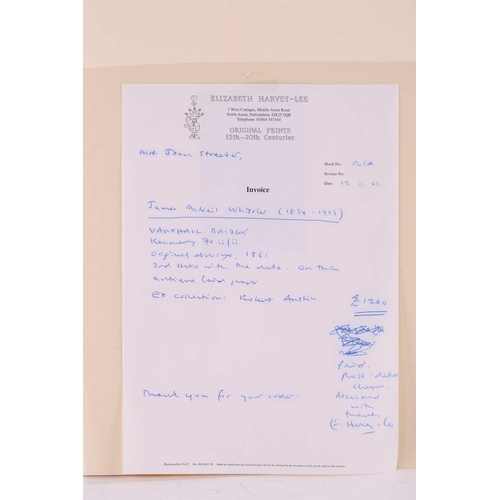 ELIZABETH HARVEY-LEE
1 West Cottages, Middle Aston Road
North Aston, Oxfordshire OX25 5QB
Telephone 01869 347164
ORIGINAL PRINTS
15th-20th Centuries
Mrs Joan Streeter,
Stock No: N/A
Invoice No:
Date:
Invoice
James McNeil Whistler (1834-1903)
VAUXHALL BRIDGE
Kennedy 70 ii/ii
original etching, 1861
2nd state with the date. On thin
antique laid paper
Ex collection: Robert Austin. £1200
Paid.
Post-dated
cheque
received
with
thanks
E. Harvey-Lee
Thank you for your order.
Registered for V.A.T.